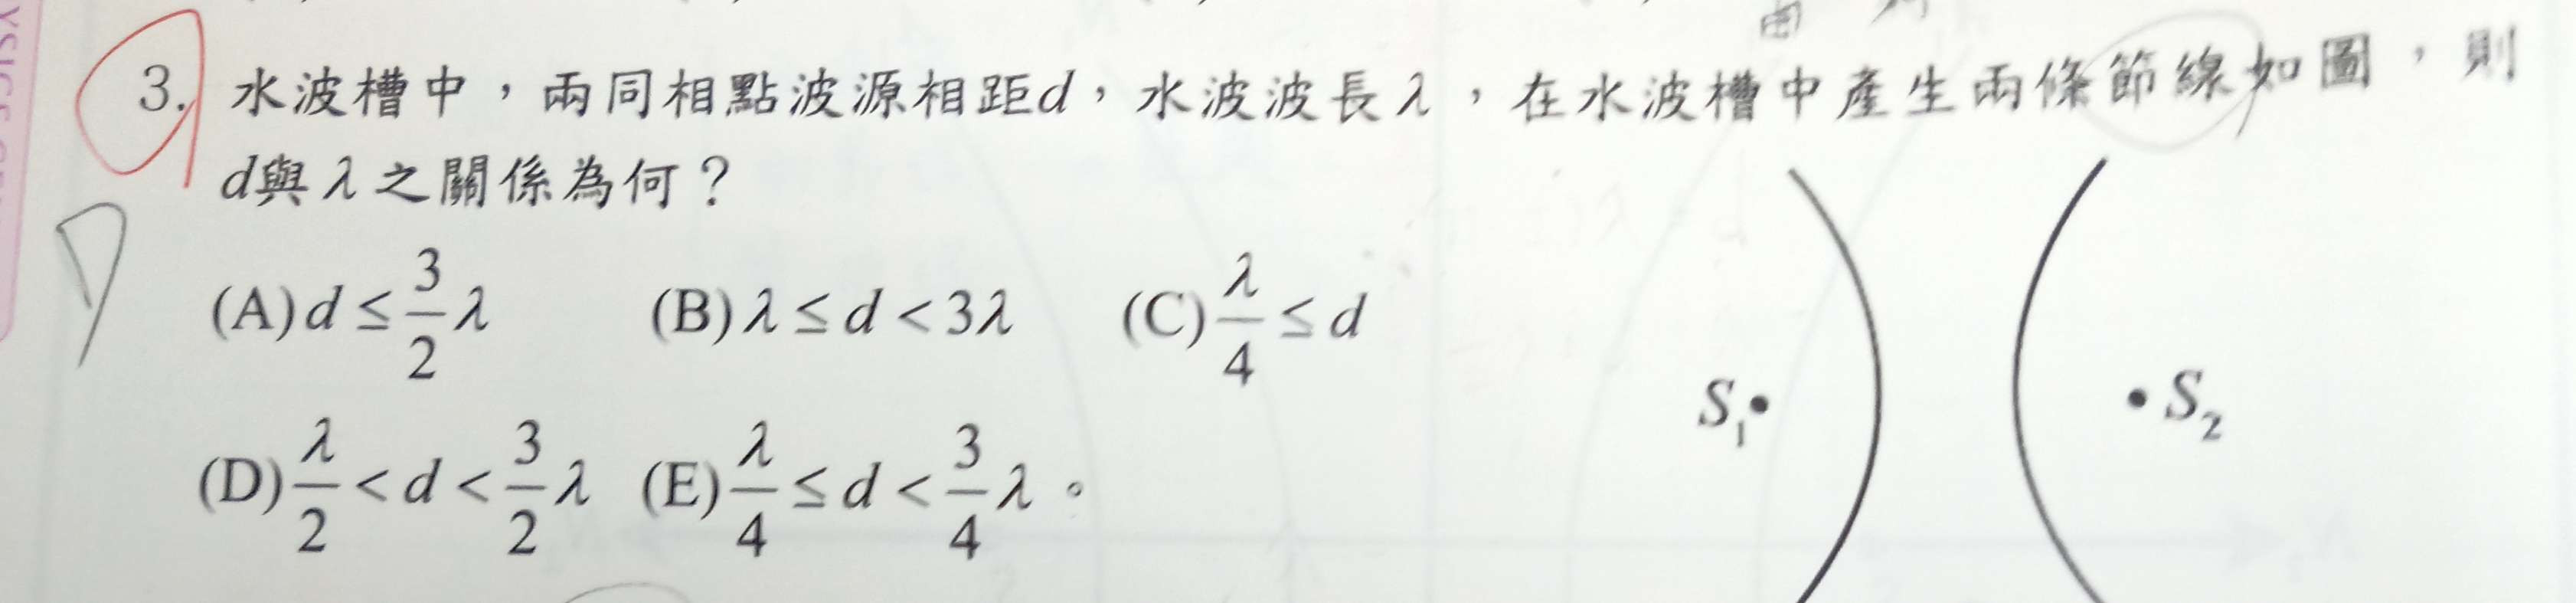 3. 水波槽中，兩同相點波源相距d，水波波長λ，在水波槽中產生兩條節線如圖，則
d與λ之關係為何？
D
(A) d ≤ 3/2 λ (B) λ ≤ d < 3λ (C) λ/4 ≤ d
(D) λ/2 < d < 3/2 λ (E) λ/4 ≤ d < 3/4 λ。
S₁ S₂